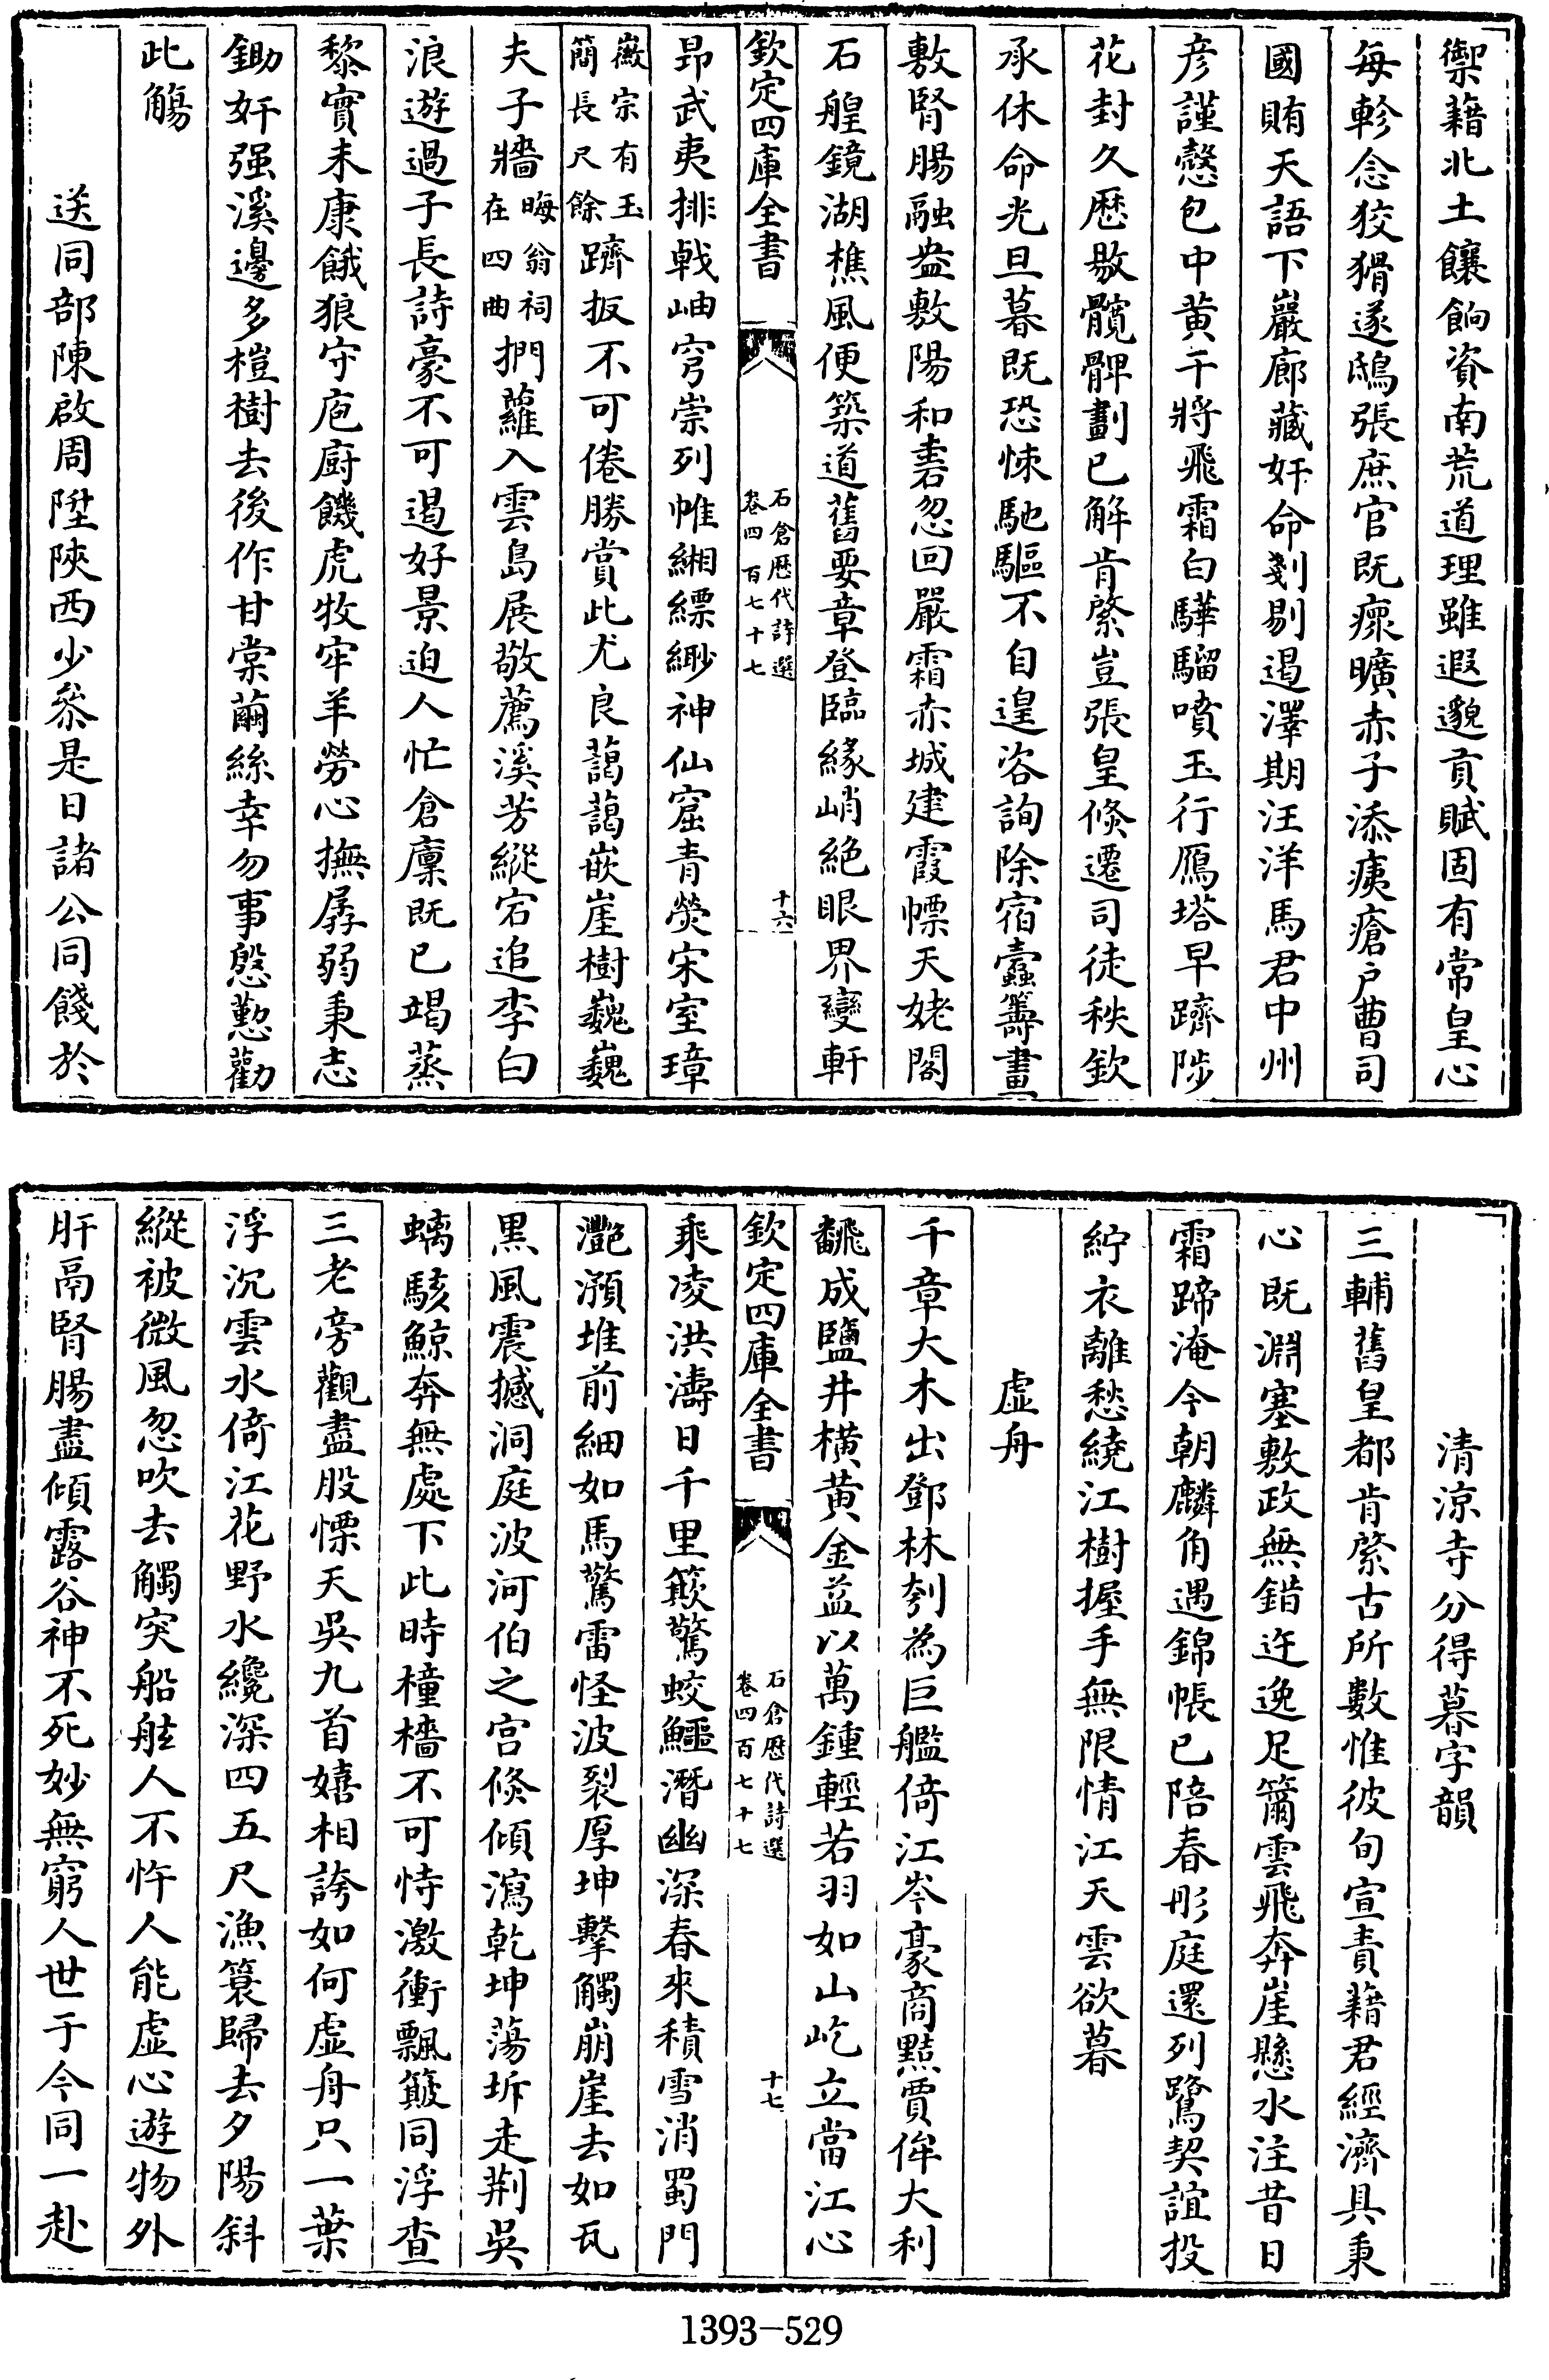 禦藉北土饟餉資南荒道理雖遐邈貢賦固有常皇心
每軫念狡猾遂鴟張庶官既瘝曠赤子添痍瘡户曹司
國賄天語下巖廊藏奸命剗剔遏澤期汪洋馬君中州
彦謹慤包中黄干將飛霜白驊騮噴玉行鴈塔早躋陟
花封久歴敭髖髀劃已解肯綮豈張皇倐遷司徒秩欽
承休命光旦暮既恐悚馳驅不自遑咨詢除宿蠹籌畫
敷腎腸融盎敷陽和砉忽回嚴霜赤城建霞幖天姥閣
石艎鏡湖樵風便築道舊要章登臨緣峭絶眼界變軒
欽定四庫全書
石倉歴代詩選
卷四百七十七
十六
昂武夷排戟岫穹崇列帷緗縹緲神仙窟青熒宋室璋
徽宗有玉
簡長尺餘
躋扳不可倦勝賞此尤良藹藹嵌崖樹巍巍
夫子牆
晦翁祠
在四曲
捫蘿入雲島展敬薦溪芳縱宕追李白
浪遊過子長詩豪不可遏好景迫人忙倉廩既已竭蒸
黎實未康餓狼守庖厨饑虎牧牢羊勞心撫孱弱秉志
鋤奸强溪邊多榿樹去後作甘棠繭絲幸勿事慇懃勸
此觴
送同部陳啟周陞陜西少叅是日諸公同餞於
清凉寺分得暮字韻
三輔舊皇都肯綮古所數惟彼旬宣責藉君經濟具秉
心既淵塞敷政無錯迕逸足籋雲飛奔崖懸水注昔日
霜蹄淹今朝麟角遇錦帳已陪春彤庭還列鷺契誼投
紵衣離愁繞江樹握手無限情江天雲欲暮
虚舟
千章大木出鄧林刳為巨艦倚江岑豪商黠賈侔大利
飜成鹽井横黄金益以萬鍾輕若羽如山屹立當江心
欽定四庫全書
石倉歴代詩選
卷四百七十七
十七
乘凌洪濤日千里簸驚蛟鱷潛幽深春來積雪消蜀門
灔澦堆前細如馬驚雷怪波裂厚坤擊觸崩崖去如瓦
黒風震撼洞庭波河伯之宫倐傾瀉乾坤蕩坼走荆吳
螭駭鯨奔無處下此時橦檣不可恃激衝飄簸同浮查
三老旁觀盡股慄天吳九首嬉相誇如何虚舟只一葉
浮沉雲水倚江花野水纔深四五尺漁簑歸去夕陽斜
縱被微風忽吹去觸突船舷人不忤人能虚心遊物外
肝鬲腎腸盡傾露谷神不死妙無窮人世于今同一赴
1393-529